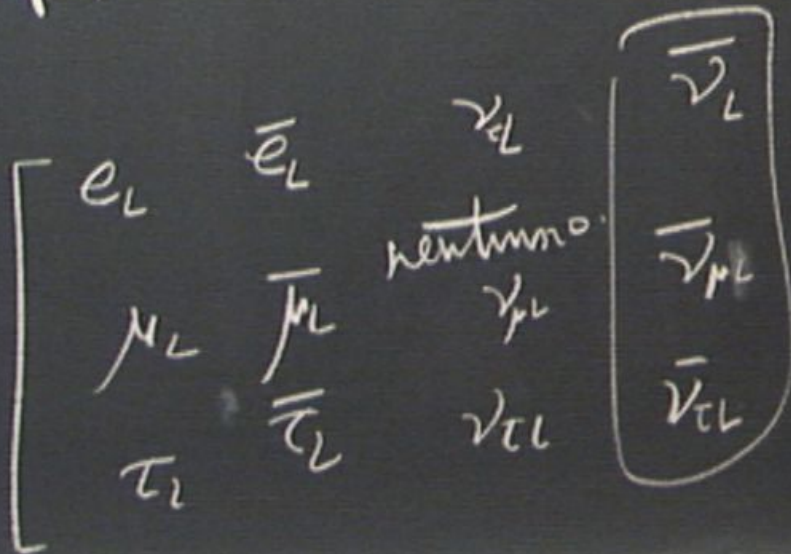 e_L ē_L ν_eL ν̄_L
neutrino
μ_L μ̄_L ν_μL ν̄_μL
τ_L τ̄_L ν_τL ν̄_τL